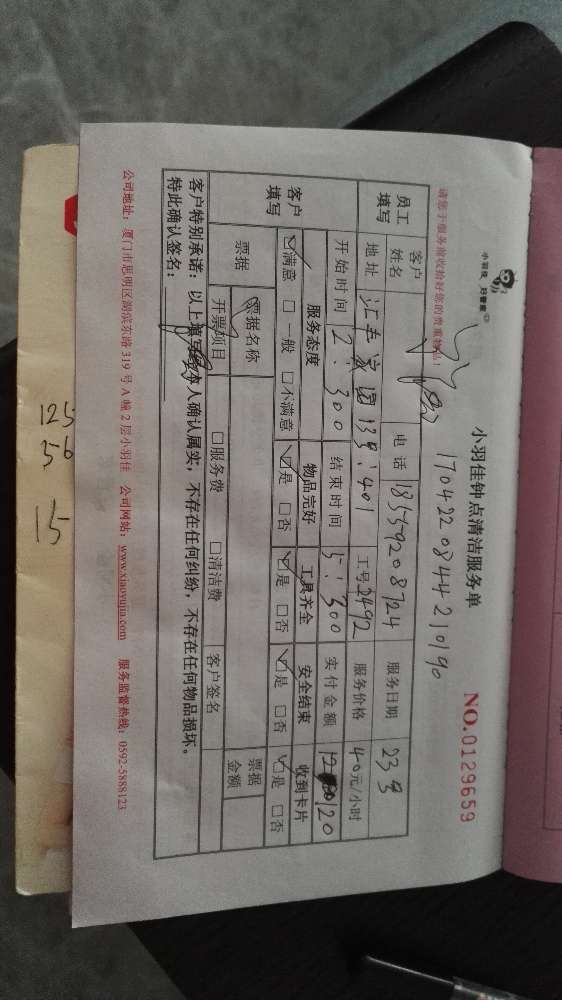 小羽佳 好管家
小羽佳钟点清洁服务单
NO.0129659
170422084421090
请您于服务前收拾好您的贵重物品!
员工填写
客户姓名 电话 18559208724 服务日期 23号
地址 汇丰家园139:401 工号 2492 服务价格 40元/小时
开始时间 2:300 结束时间 5:300 实付金额 120
客户填写
服务态度 物品完好 工具齐全 安全结束 收到卡片
☑满意 □一般 □不满意 ☑是 □否 ☑是 □否 ☑是 □否 ☑是 □否
票据 票据名称 票据金额
开票项目 □服务费 □清洁费 客户签名
客户特别承诺:以上填写经本人确认属实,不存在任何纠纷,不存在任何物品损坏。
特此确认签名:
公司地址:厦门市思明区湖滨东路319号A幢2层小羽佳 公司网站:www.xiaoyujia.com 服务监督热线:0592-5888123
125
56
15